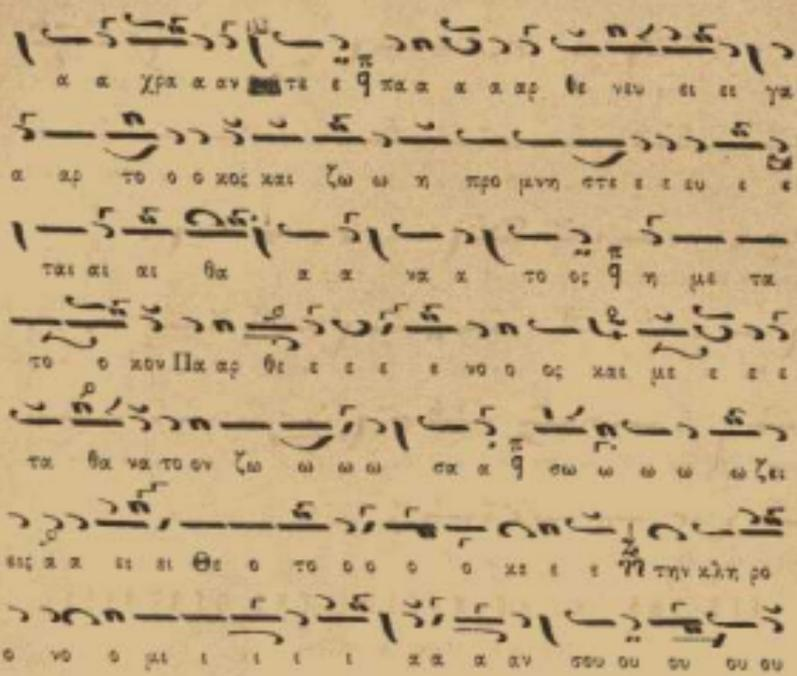 α α χρα α αν τε ε π̅ q πα α α α αρ θε νευ ει ει γα
α αρ το ο ο κος και ζω ω η προ μνη στε ε ε ευ ε ε
ται αι αι θα α α να α το ος π̅ q η με τα
το ο κον Πα αρ θε ε ε ε ε νο ο ος και με ε ε ε
τα θα να το ον ζω ω ω ω σα α π̅ q σω ω ω ω ω ζει
εις α α ει ει Θε ο το ο ο ο ο κε ε ε την κλη ρο
ο νο ο μι ι ι ι ι α α α αν σου ου ου ου ου